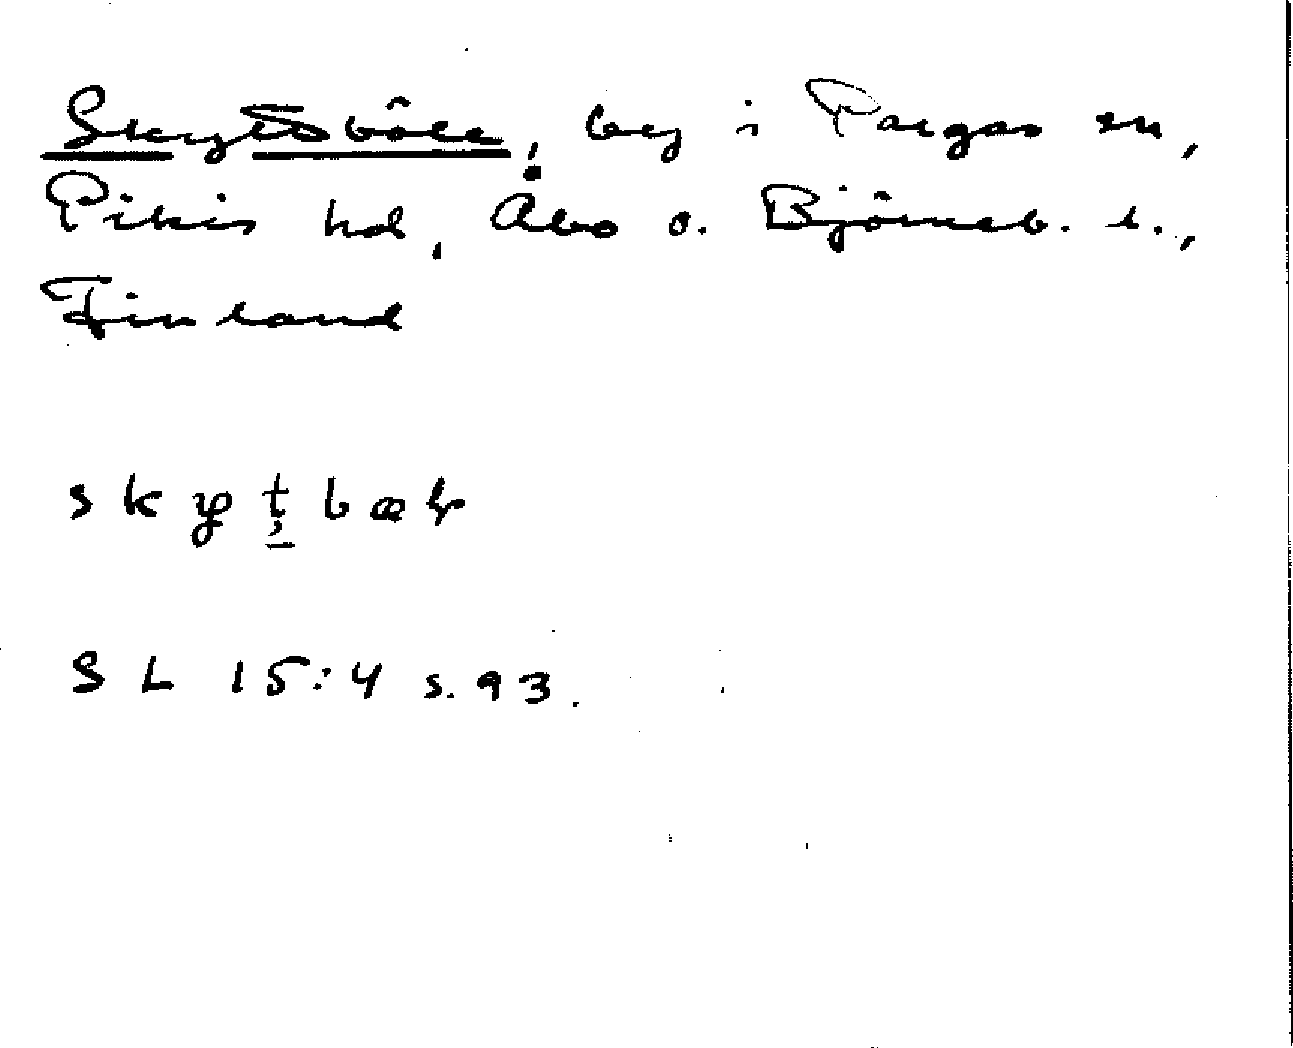 Skyttböle, by i Pargas sn,
Pikis hd, Åbo o. Björneb. l.,
Finland
SL 15:4 s. 93.